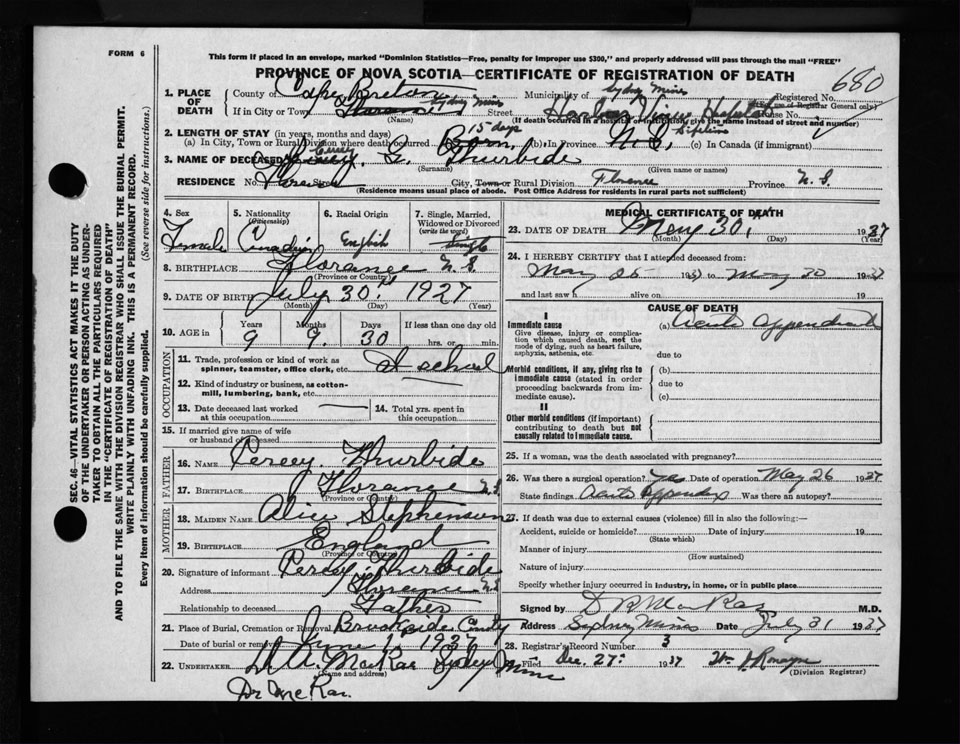 FORM 6
This form if placed in an envelope, marked "Dominion Statistics—Free, penalty for improper use $300," and properly addressed will pass through the mail "FREE"
PROVINCE OF NOVA SCOTIA—CERTIFICATE OF REGISTRATION OF DEATH
680
1. PLACE OF DEATH
County of Cape Breton Municipality of Sydney Mines Registered No.
(For use of Registrar General only)
If in City or Town Sydney Mines Street Harbor View Hospital House No.
(Name) (If death occurred in a hospital or institution give the name instead of street and number)
2. LENGTH OF STAY (in years, months and days) 15 days
(a) In City, Town or Rural Division where death occurred Born (b) In Province N.S. Lifetime (c) In Canada (if immigrant)
3. NAME OF DECEASED G. Thurbide
(Surname) (Given name or names)
RESIDENCE No. Street City, Town or Rural Division Florence Province N.S.
(Residence means usual place of abode. Post Office Address for residents in rural parts not sufficient)
4. Sex Female
5. Nationality (Citizenship) Canadian
6. Racial Origin English
7. Single, Married, Widowed or Divorced (write the word) Single
8. BIRTHPLACE Florance N.S.
(Province or Country)
9. DATE OF BIRTH July 30 1927
(Month) (Day) (Year)
10. AGE in Years Months Days If less than one day old
9 9. 30 hrs. or min.
OCCUPATION
11. Trade, profession or kind of work as spinner, teamster, office clerk, etc. At school
12. Kind of industry or business, as cotton-mill, lumbering, bank, etc.
13. Date deceased last worked at this occupation
14. Total yrs. spent in this occupation
15. If married give name of wife or husband of deceased
FATHER
16. NAME Percey Thurbide
17. BIRTHPLACE Florance N.S.
(Province or Country)
MOTHER
18. MAIDEN NAME Alice Stephenson
19. BIRTHPLACE England
(Province or Country)
20. Signature of informant Percey Thurbide
Address Florence N.S.
Relationship to deceased Father
21. Place of Burial, Cremation or Removal Brookside County
Date of burial or removal June 1 1937
22. UNDERTAKER D. A. MacRae Sydney Mines
(Name and address)
Dr McRae.
MEDICAL CERTIFICATE OF DEATH
23. DATE OF DEATH May 30, 1937
(Month) (Day) (Year)
24. I HEREBY CERTIFY that I attended deceased from:
May 26 1937 to May 30 1937
and last saw h alive on 19
CAUSE OF DEATH
I
Immediate cause
Give disease, injury or complication which caused death, not the mode of dying, such as heart failure, asphyxia, asthenia, etc.
(a) Acute Appendicitis
due to
Morbid conditions, if any, giving rise to immediate cause (stated in order proceeding backwards from immediate cause).
(b)
due to
(c)
II
Other morbid conditions (if important) contributing to death but not causally related to immediate cause.
25. If a woman, was the death associated with pregnancy?
26. Was there a surgical operation? Yes Date of operation May 26 1937
State findings Acute Appendix Was there an autopsy?
27. If death was due to external causes (violence) fill in also the following:—
Accident, suicide or homicide? Date of injury 19
(State which)
Manner of injury
(How sustained)
Nature of injury
Specify whether injury occurred in industry, in home, or in public place
Signed by D R MacRae M.D.
Address Sydney Mines Date July 31 1937
28. Registrar's Record Number 3
Filed Dec. 27 1937
(Division Registrar)
SEC. 46—VITAL STATISTICS ACT MAKES IT THE DUTY
OF THE UNDERTAKER OR PERSON ACTING AS UNDER-
TAKER TO OBTAIN ALL THE PARTICULARS REQUIRED
IN THE "CERTIFICATE OF REGISTRATION OF DEATH"
AND TO FILE THE SAME WITH THE DIVISION REGISTRAR WHO SHALL ISSUE THE BURIAL PERMIT.
WRITE PLAINLY WITH UNFADING INK. THIS IS A PERMANENT RECORD.
Every item of information should be carefully supplied. (See reverse side for instructions.)